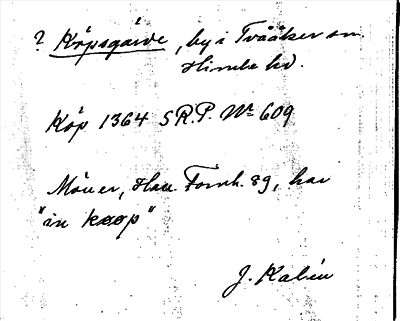 ? Köpsgårde, by i Tvååker sn.
Himle hd.
Köp 1364 SR.P. Nr 609
Möner, Hall. Fornh. 89, har
"in køøp"
J. Kalén